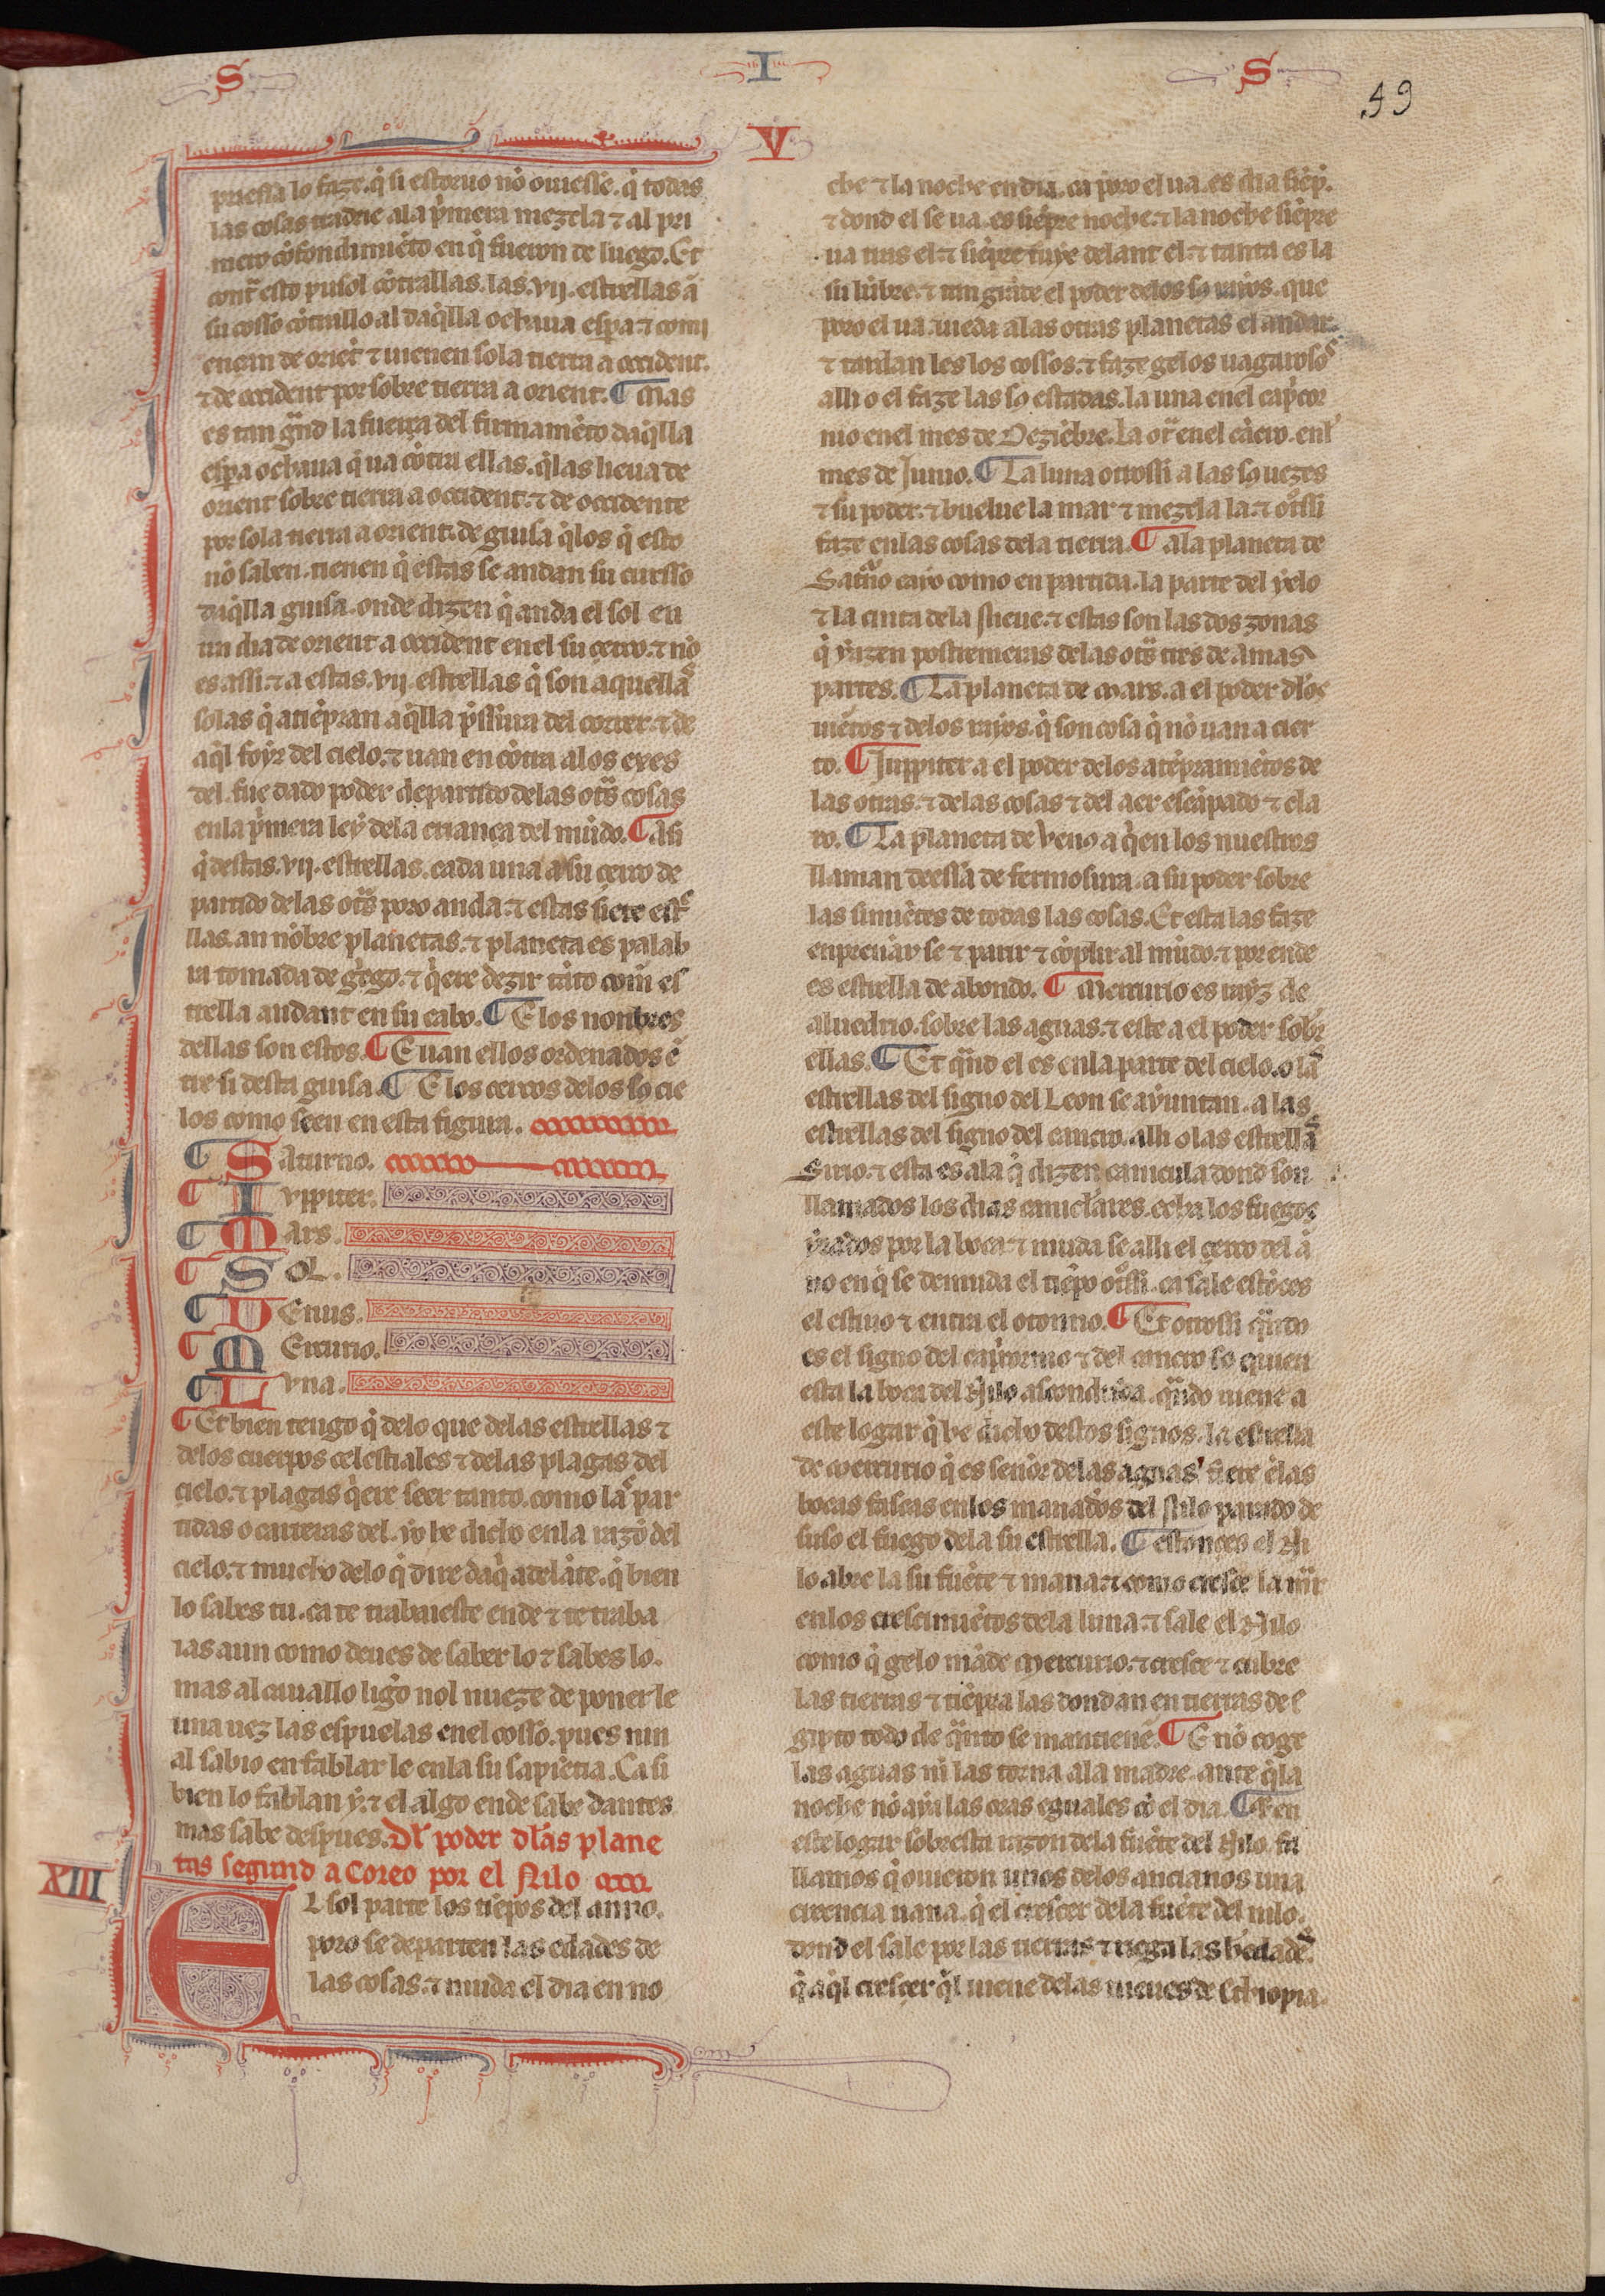 S I S
59
V
priessa lo faze. q̉ si estoruo nõ ouiesse. q̉ todas
las cosas tradrie ala p̉mera mezcla ⁊ al pri
mero cõfondimiẽto en q̉ fueron de luego. Et
contr̃ esto pusol cõtrallas. las .vij. estrellas ã
su cosso cõtrallo al daq̉lla ochaua esp̃a ⁊ comi
ençan de oriẽt ⁊ uienen so la tierra a occident.
⁊ de occident por sobre tierra a orient. ¶ Mas
es tan gñd la fuerça del firmamẽto daq̉lla
esp̃a ochaua q̉ ua cõtra ellas. q̉las lieua de
orient sobre tierra a occident. ⁊ de occidente
por so la tierra a orient. de guisa q̉los q̉ esto
nõ saben. tienen q̉ estas se andan su curso
daq̉lla guisa. onde dizen q̉ anda el sol en
un dia de orient a occident en el su cerco. ⁊ nõ
es assi. ⁊ a estas .vij. estrellas q̉ son aquellas
solas q̉ atiẽpran aq̉lla p̉ssura del correr. ⁊ de
aq̉l foyr del cielo. ⁊ uan en cõtra alos exes
del. fue dado poder departido delas otr̃s cosas
en la p̉mera ley dela criança del mũdo. ¶ Assi
q̉ destas .vij. estrellas. cada una a su cerco de
partido delas otr̃s poro anda. ⁊ estas siete estre
llas. an nõbre planetas. ⁊ planeta es palab
ra tomada de g̉ego. ⁊ q̉ere dezir tãto com̃ es
trella andant en su cabo. ¶ E los nonbres
dellas son estos. ¶ E uan ellos ordenados ẽ
tre si desta guisa. ¶ E los cercos delos sos cie
los como seen en esta figura.
¶ Saturno.
¶ Iuppiter.
¶ Mars.
¶ SOL.
¶ VEnus.
¶ MErcurio.
¶ Luna.
¶ Et bien tengo q̉ delo que delas estrellas ⁊
delos cuerpos celestiales ⁊ delas plagas del
cielo. ⁊ plagas q̉ere seer tanto. como las par
tidas o carreras del. yo he dicho en la razõ del
cielo. ⁊ mucho delo q̉ dire daq̉ adelãte. q̉ bien
lo sabes tu. ca te trabaieste ende ⁊ te traba
ias aun como deues de saber lo ⁊ sabes lo.
mas al cauallo lig̉o nol nueze de poner le
una uez las espuelas en el cosso. pues nin
al sabio en fablar le en la su sapiẽcia. Ca si
bien lo fablan y. ⁊ el algo ende sabe dantes
mas sabe despues. Dl̉ poder dl̉as plane
tas segund acoreo por el Nilo
XIII
EL sol parte los tiẽpos del anno.
poro se departen las edades de
las cosas. ⁊ muda el dia en no
che ⁊ la noche en dia. ca poro el ua. es dia siẽp̉.
⁊ dond el se ua. es siẽpre noche. ⁊ la noche siẽpre
ua tras el. ⁊ siẽpre fuye delant el. ⁊ tanta es la
su lũbre. ⁊ tan grãde el poder delos sos rayos. que
poro el ua. ueda alas otras planetas el andar.
⁊ tardan les los cossos. ⁊ faze gelos uagarosos
alli o el faze las sos estadas. la una en el cap̉cor
nio en el mes de Deziẽbre. la otr̃ en el cãcro. en l
mes de Junio. ¶ La luna otrossi a las sos uezes
⁊ su poder. ⁊ buelue la mar ⁊ mezcla la. ⁊ ot̉ssi
faze en las cosas dela tierra. ¶ Ala planeta de
Sat̉no cayo como en partida. la parte del yelo
⁊ la cinta dela nieue. ⁊ estas son las dos zonas
q̉ yazen postremeras delas otr̃s tres de amas
partes. ¶ La planeta de Mars. a el poder dl̉os
uiẽtos ⁊ delos rayos. q̉ son cosa q̉ nõ uan a cier
to. ¶ Juppiter a el poder delos atẽpramiẽtos de
las otras. ⁊ delas cosas ⁊ del aer escãpado ⁊ cla
ro. ¶ La planeta de Venus a q̉en los nuestros
llaman deessa de fermosura. a su poder sobre
las simiẽtes de todas las cosas. Et esta las faze
enprennar se ⁊ parir ⁊ cõplir al mũdo. ⁊ por ende
es estrella de abondo. ¶ Mercurio es rayz de
aluedrio. sobre las aguas. ⁊ este a el poder sobr̃
ellas. ¶ Et qñdo el es en la parte del cielo. o las
estrellas del signo del Leon se ayuntan. a las
estrellas del signo del cancro. alli o las estrellas
Sirio. ⁊ esta es ala q̉ dizen canicula dond son
llamados los dias caniclares. echa los fuegos
yrados por la boca. ⁊ muda se alli el cerco del ã
no en q̉ se demuda el tiẽpo ot̉ssi. ca sale estõces
el estiuo ⁊ entra el otonno. ¶ Et otrossi qñdo
es el signo del cap̉cornio ⁊ del cancro so quien
esta la boca del Nilo ascondida. qñdo uiene a
este logar q̉ he dicho destos signos. la estrella
de Mercurio q̉ es sennor delas aguas. fiere ẽ las
bocas fascas en los manaderos del Nilo parado de
suso el fuego dela su estrella. ¶ estonces el Ni
lo abre la su fuẽte ⁊ mana. ⁊ como cresce la mar
en los crescimiẽtos dela luna. ⁊ sale el Nilo
como q̉ gelo mãde Mercurio. ⁊ cresce ⁊ cubre
las tierras ⁊ tiẽpra las dond an en tierras de e
gipto todo de qñto se mantienẽ. ¶ E nõ coge
las aguas ni las torna ala madre. ante q̉ la
noche nõ aya las oras eguales cõ el dia. ¶ E en
este logar sobresta razon dela fuẽte del Nilo. fa
llamos q̉ ouieron unos delos ancianos una
creencia uana. q̉ el crescer dela fuẽte del nilo.
dond el sale por las tierras ⁊ riega las heredades.
q̉ aq̉l crescer q̉l uiene delas nieues de Ethiopia.